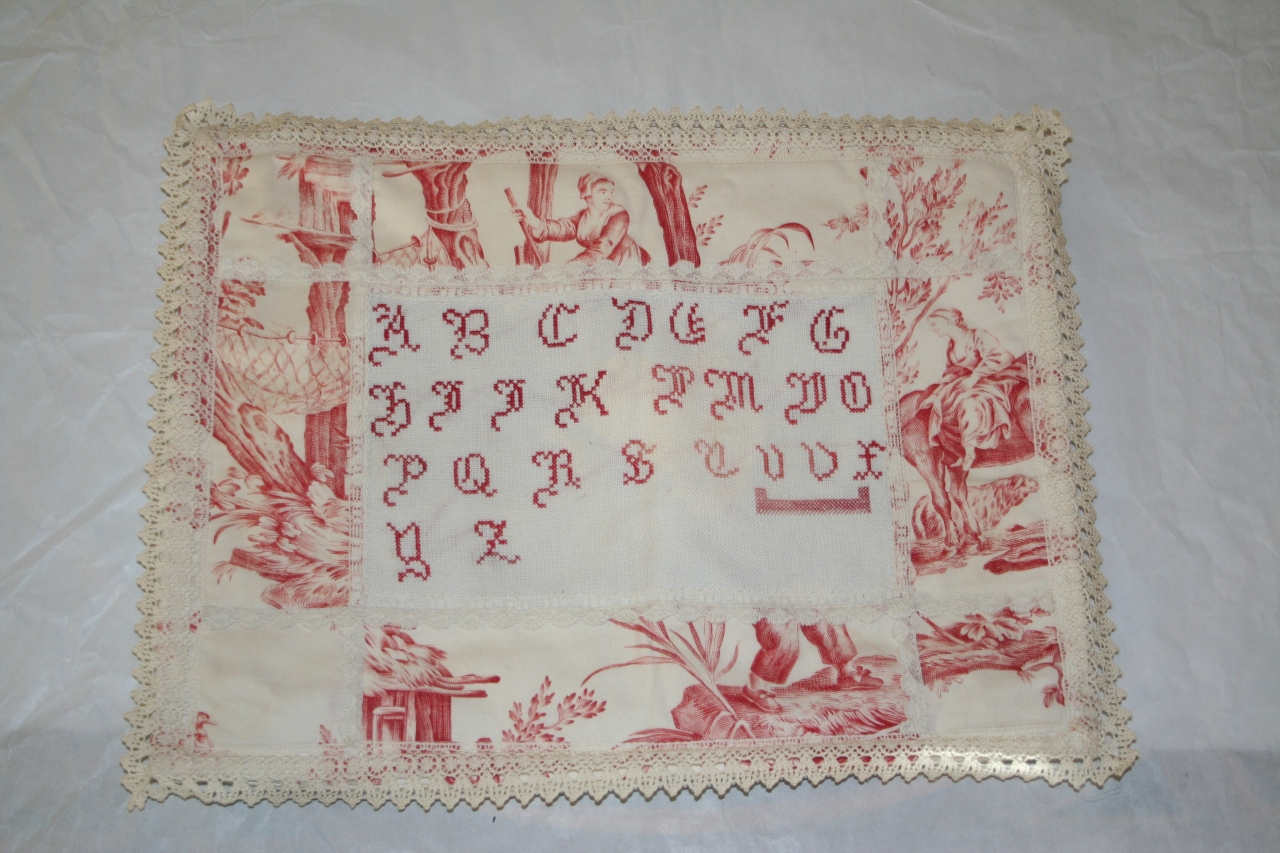 A B C D E F G
H I J K L M N O
P Q R S T U V X
Y Z